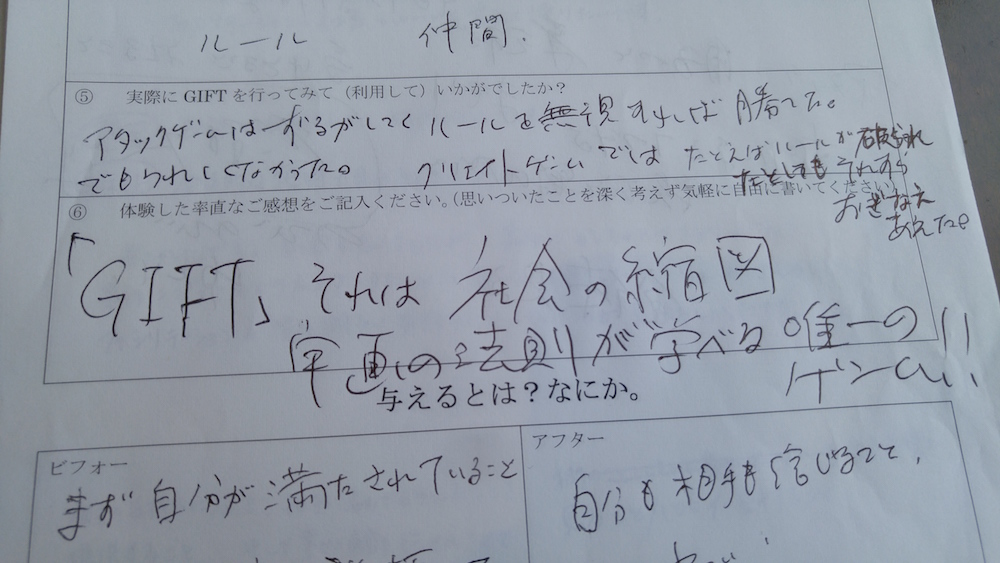 ルール 仲間.
⑤ 実際に GIFT を行ってみて（利用して）いかがでしたか？
アタックゲームはずるがしてく ルールを無視すれば勝てた。
でもうれしくなかった。 クリエイトゲームでは たとえばルールが破られ
たとしても それすら
おぎなえ
あえた。
⑥ 体験した率直なご感想をご記入ください。（思いついたことを深く考えず気軽に自由に書いてください）
「GIFT」それは 社会の縮図
宇宙の法則が学べる 唯一の
ゲーム!!
与えるとは？なにか。
ビフォー
まず自分が満たされていること
アフター
自分も相手も信じること,